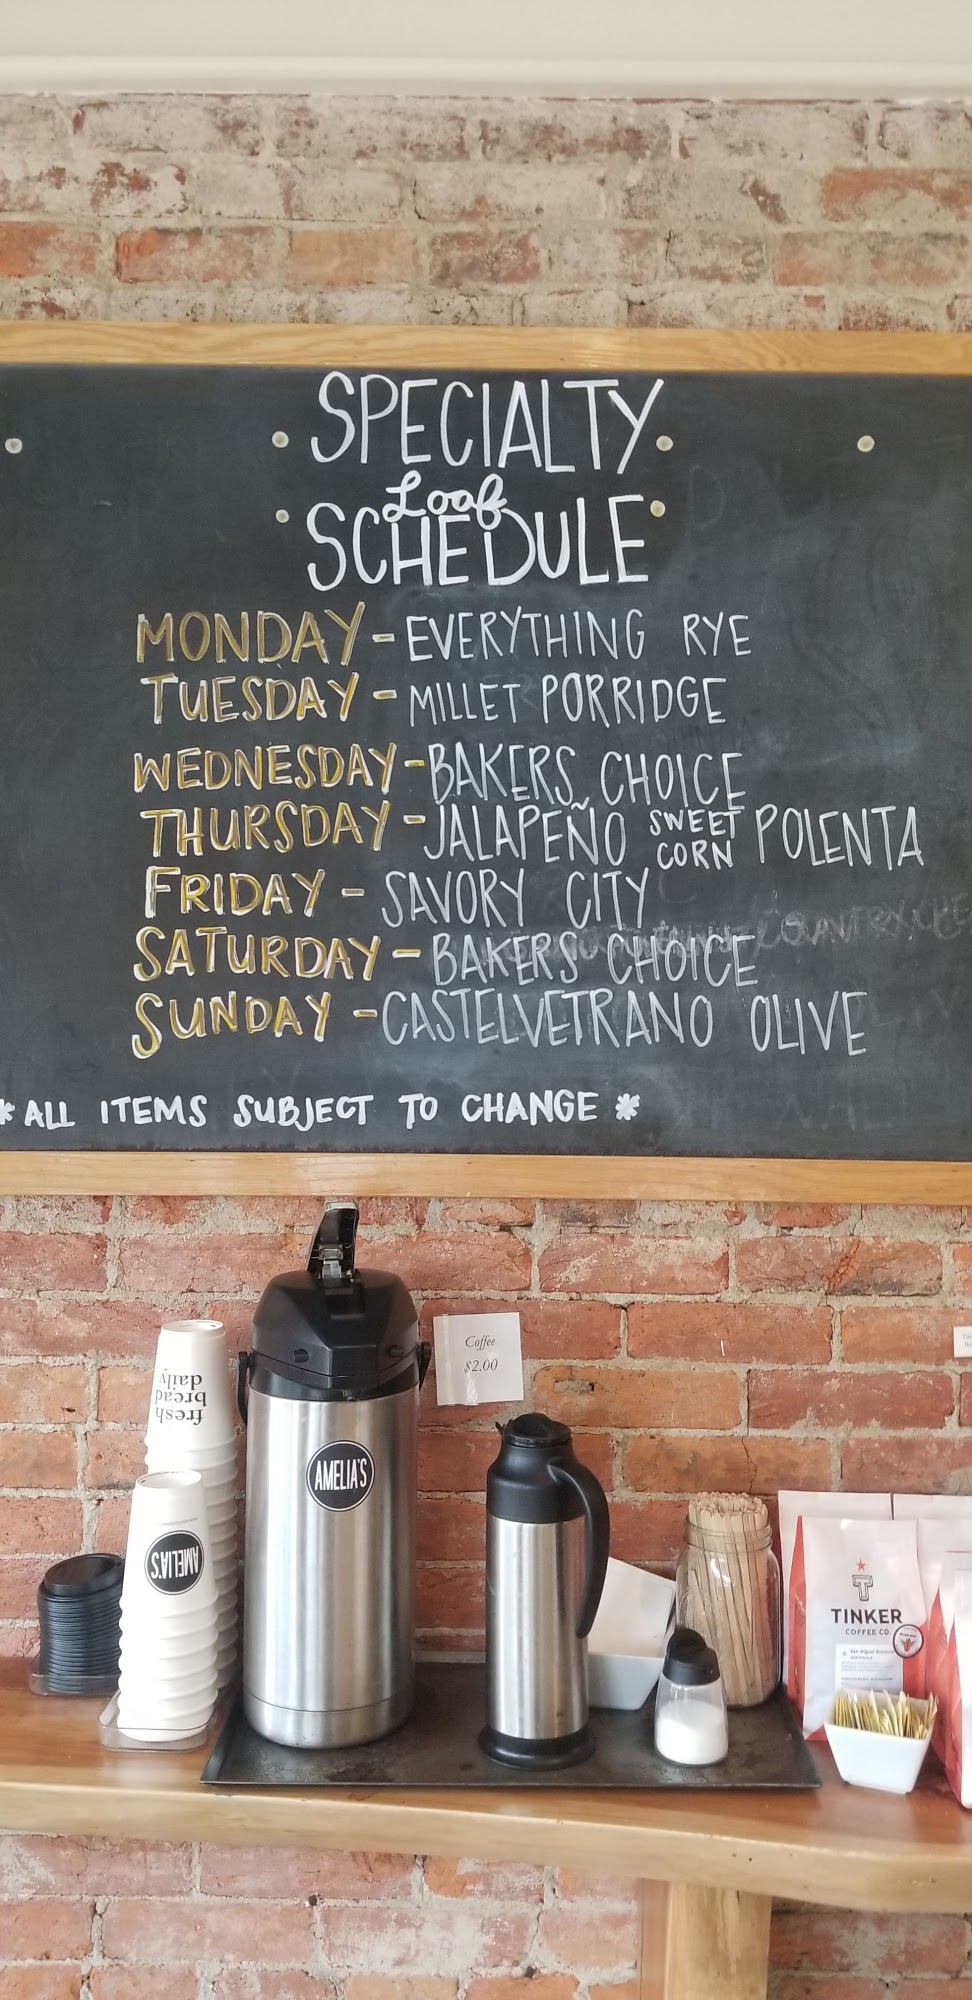 SPECIALTY
Loaf
SCHEDULE
MONDAY - EVERYTHING RYE
TUESDAY - MILLET PORRIDGE
WEDNESDAY - BAKERS CHOICE
THURSDAY - JALAPEÑO SWEET CORN POLENTA
FRIDAY - SAVORY CITY
SATURDAY - BAKERS CHOICE
SUNDAY - CASTELVETRANO OLIVE
* ALL ITEMS SUBJECT TO CHANGE *
Coffee
$2.00
fresh
bread
daily
AMELIA'S
AMELIA'S
TINKER
COFFEE CO.